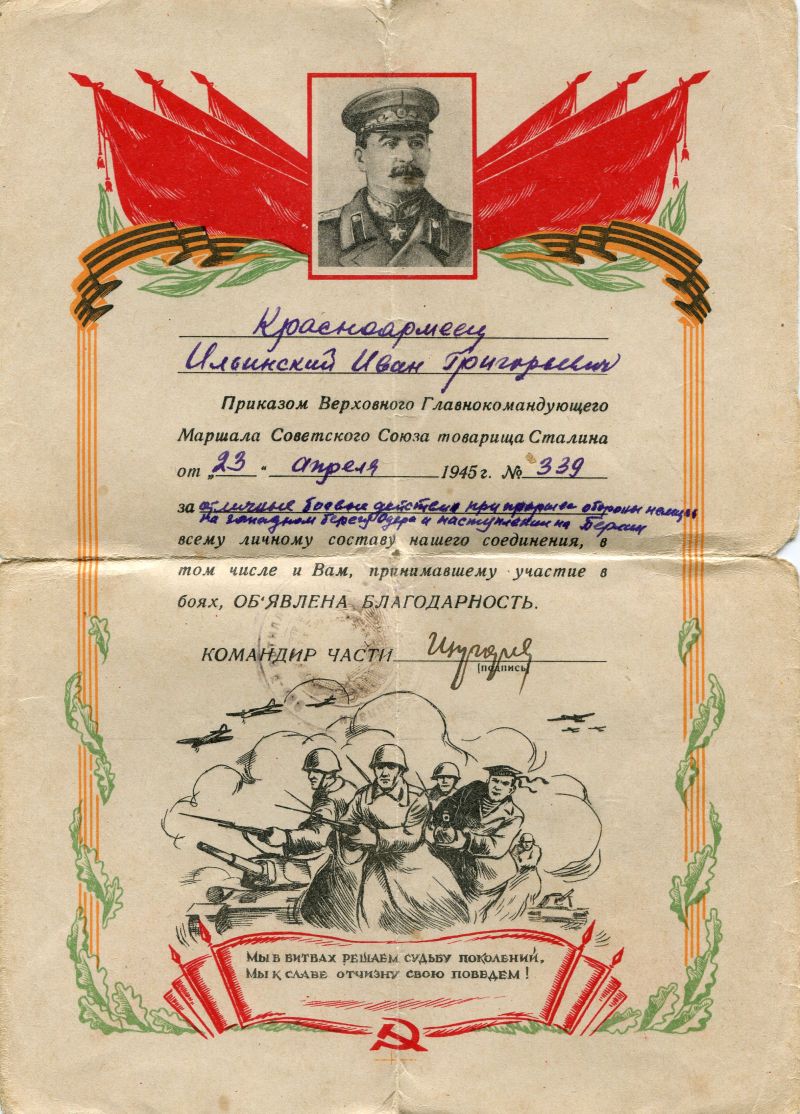 Красноармеец
Ильинский Иван Григорьевич
Приказом Верховного Главнокомандующего
Маршала Советского Союза товарища Сталина
от „23“ апреля 1945 г. № 339
за отличные боевые действия при прорыве обороны немцев
на западном берегу Одера и наступлении на Берлин
всему личному составу нашего соединения, в
том числе и Вам, принимавшему участие в
боях, ОБ'ЯВЛЕНА БЛАГОДАРНОСТЬ.
КОМАНДИР ЧАСТИ
(подпись)
МЫ В БИТВАХ РЕШАЕМ СУДЬБУ ПОКОЛЕНИЙ,
МЫ К СЛАВЕ ОТЧИЗНУ СВОЮ ПОВЕДЕМ!